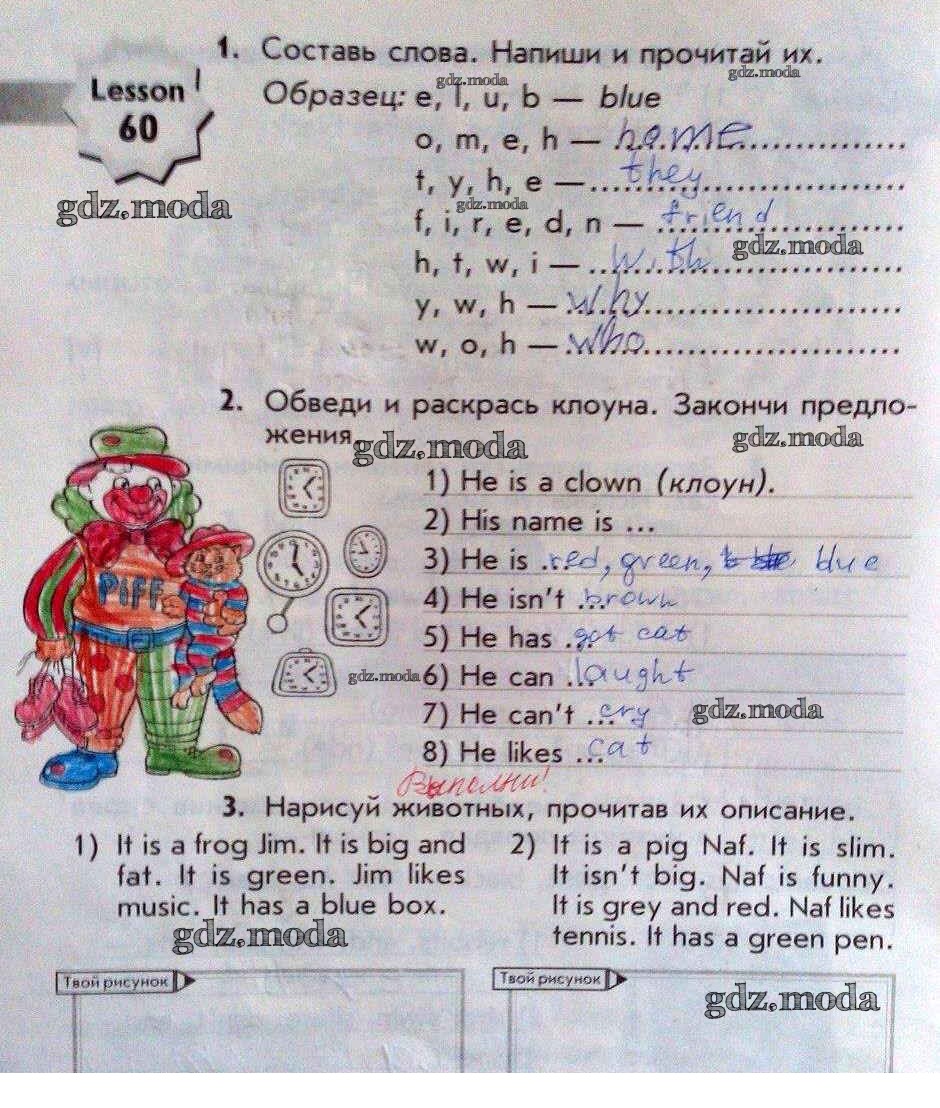 Lesson
60
1. Составь слова. Напиши и прочитай их.
gdz.moda gdz.moda
Образец: e, l, u, b — blue
o, m, e, h — home
t, y, h, e — they
gdz.moda gdz.moda
f, i, r, e, d, n — friend
gdz.moda
h, t, w, i — with
y, w, h — why
w, o, h — who
2. Обведи и раскрась клоуна. Закончи предло-
жения
gdz.moda gdz.moda
1) He is a clown (клоун).
2) His name is ...
3) He is ...red, green, blue
4) He isn't ...brown
5) He has ...got cat
gdz.moda
6) He can ...laught
7) He can't ...cry
gdz.moda
8) He likes ...cat
PIFF
Выполни!
3. Нарисуй животных, прочитав их описание.
1) It is a frog Jim. It is big and
fat. It is green. Jim likes
music. It has a blue box.
gdz.moda
2) It is a pig Naf. It is slim.
It isn't big. Naf is funny.
It is grey and red. Naf likes
tennis. It has a green pen.
Твой рисунок
Твой рисунок
gdz.moda